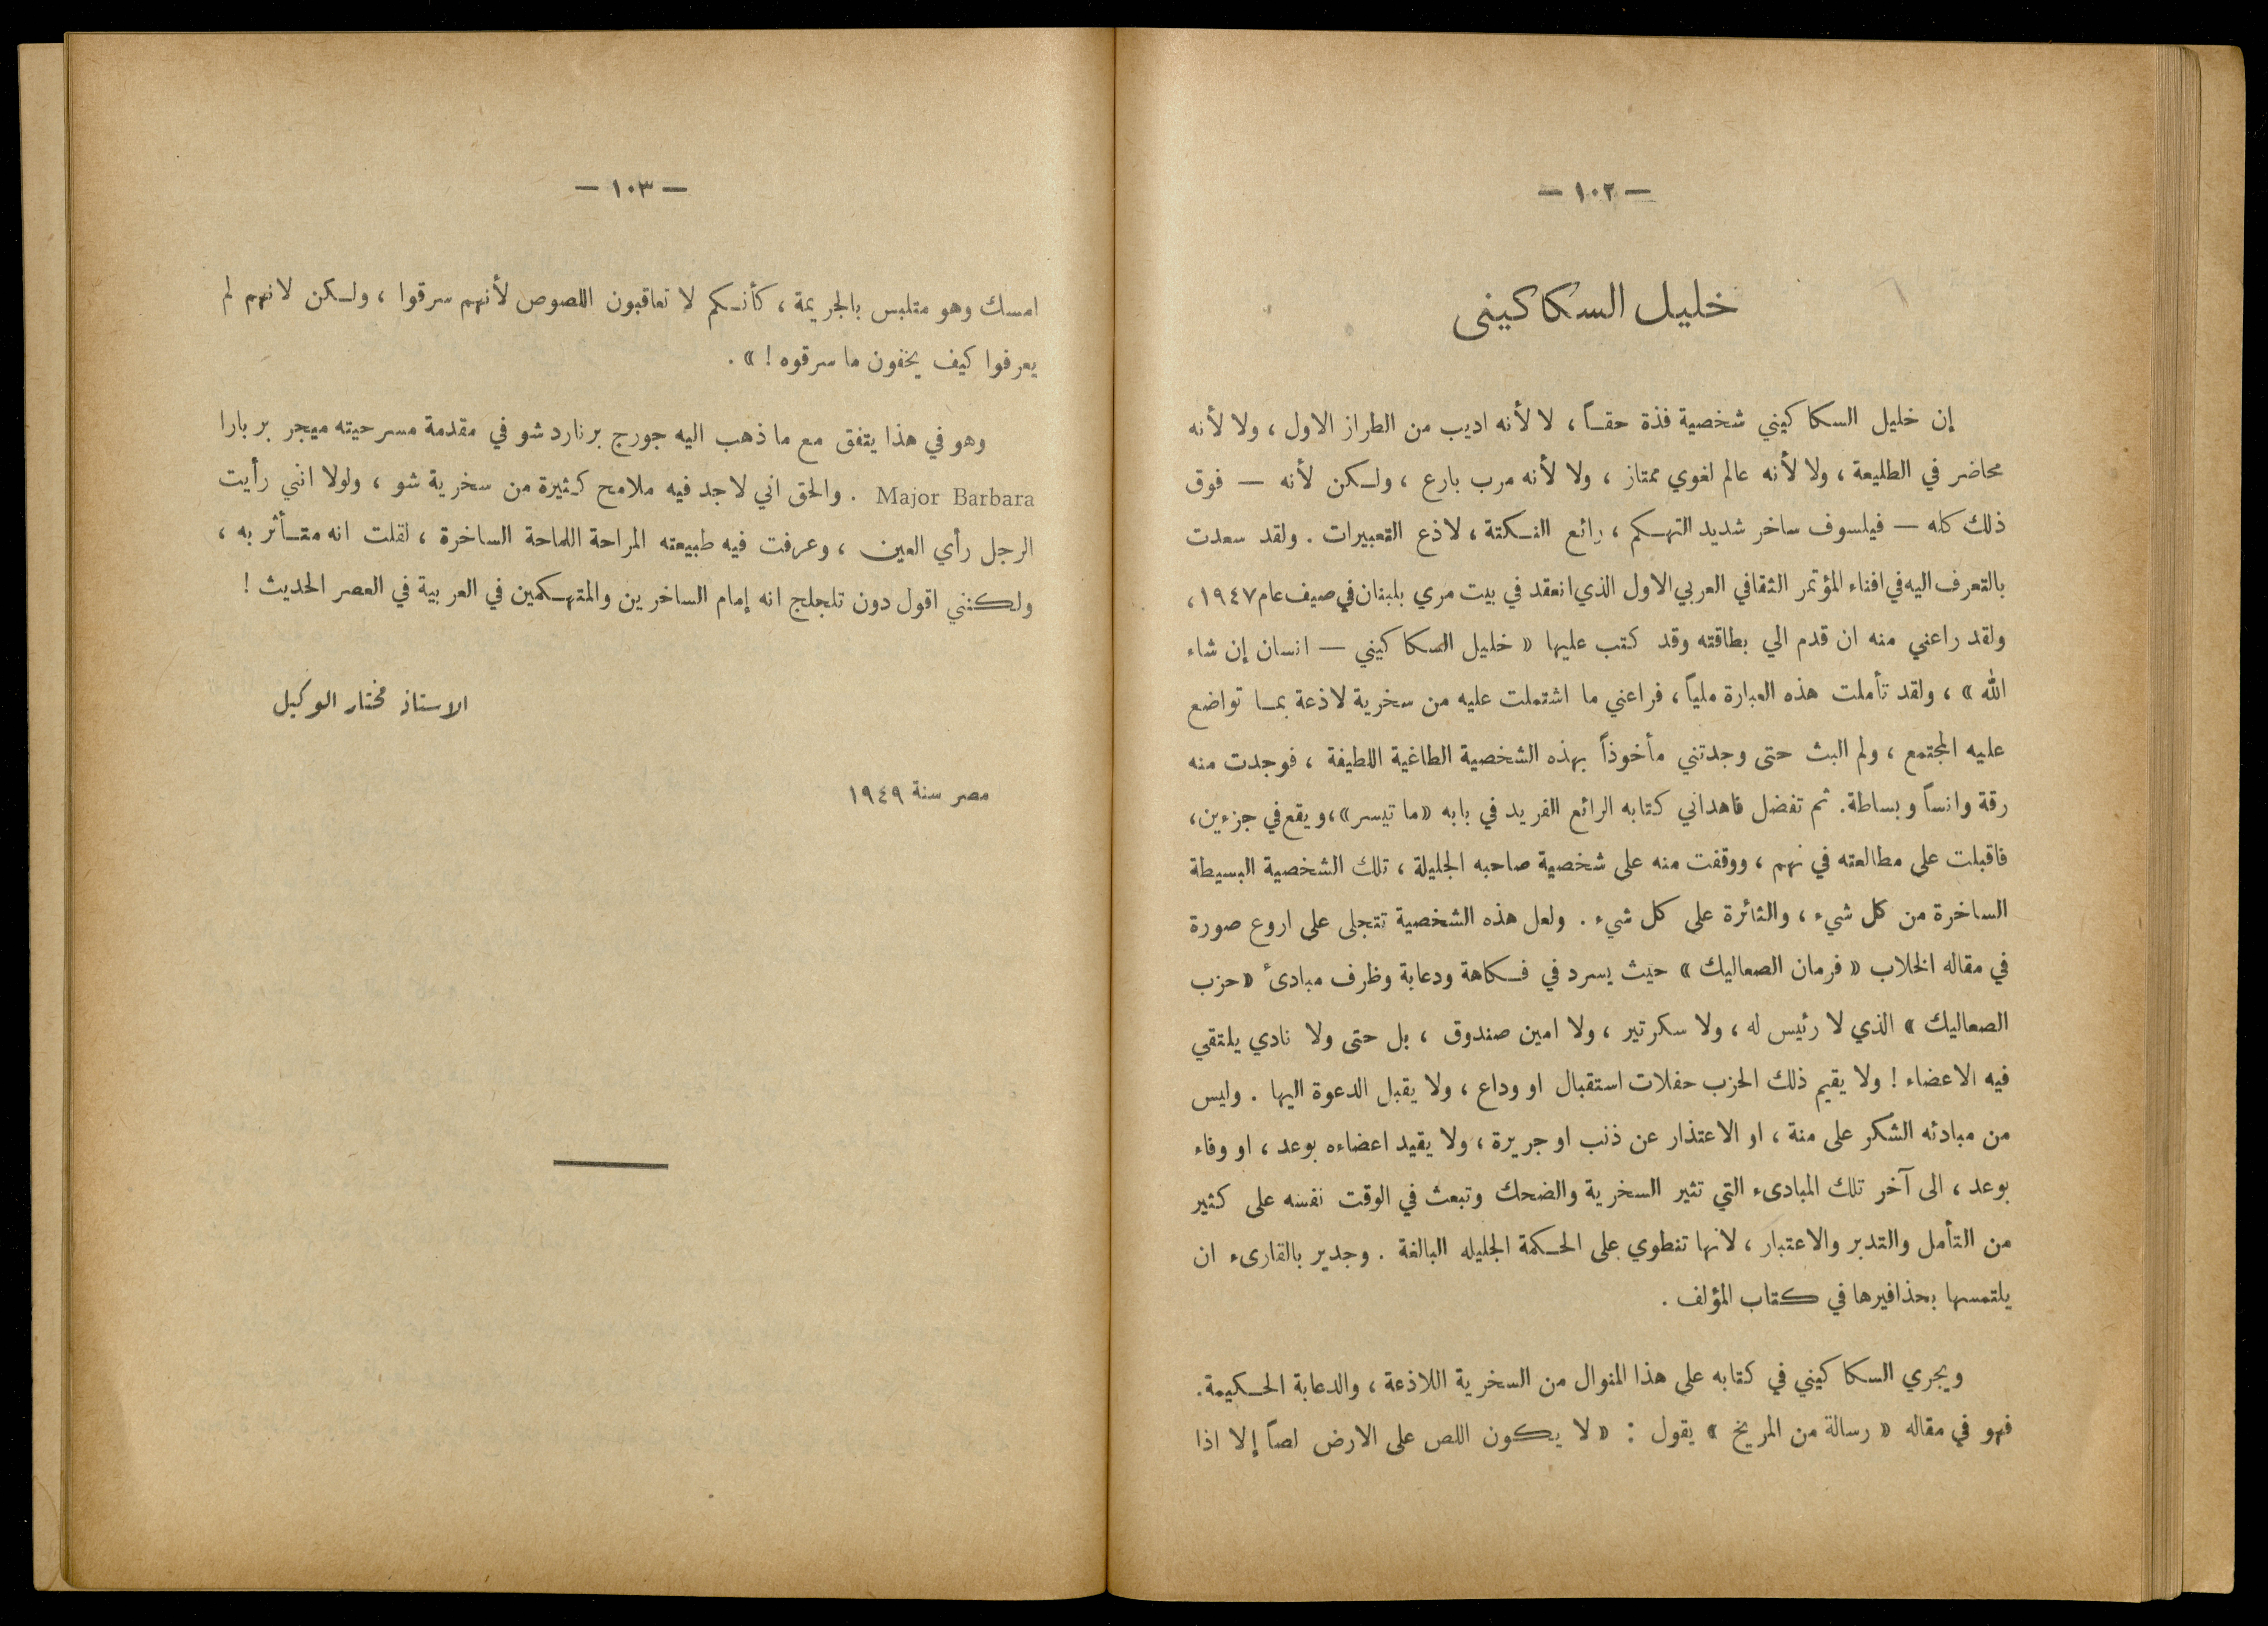 — ١٠٢ —
خليل السكاكيني
إن خليل السكاكيني شخصية فذة حقاً ، لا لأنه اديب من الطراز الاول ، ولا لأنه
محاضر في الطليعة ، ولا لأنه عالم لغوي ممتاز ، ولا لأنه مرب بارع ، ولكن لأنه — فوق
ذلك كله — فيلسوف ساخر شديد التهكم ، رائع النكتة ، لاذع التعبيرات . ولقد سعدت
بالتعرف اليه في افناء المؤتمر الثقافي العربي الاول الذي انعقد في بيت مري بلبنان في صيف عام ١٩٤٧ ،
ولقد راعني منه ان قدم الي بطاقته وقد كتب عليها « خليل السكاكيني — انسان إن شاء
الله » ، ولقد تأملت هذه العبارة ملياً ، فراعني ما اشتملت عليه من سخرية لاذعة بما تواضع
عليه المجتمع ، ولم البث حتى وجدتني مأخوذاً بهذه الشخصية الطاغية اللطيفة ، فوجدت منه
رقة وانساً وبساطة . ثم تفضل فاهداني كتابه الرائع الفريد في بابه « ما تيسر » ، ويقع في جزءين ،
فاقبلت على مطالعته في نهم ، ووقفت منه على شخصية صاحبه الجليلة ، تلك الشخصية البسيطة
الساخرة من كل شيء ، والثائرة على كل شيء . ولعل هذه الشخصية تتجلى على اروع صورة
في مقاله الخلاب « فرمان الصعاليك » حيث يسرد في فكاهة ودعابة وظرف مبادئ « حزب
الصعاليك » الذي لا رئيس له ، ولا سكرتير ، ولا امين صندوق ، بل حتى ولا نادي يلتقي
فيه الاعضاء ! ولا يقيم ذلك الحزب حفلات استقبال او وداع ، ولا يقبل الدعوة اليها . وليس
من مبادئه الشكر على منة ، او الاعتذار عن ذنب او جريرة ، ولا يقيد اعضاءه بوعد ، او وفاء
بوعد ، الى آخر تلك المبادىء التي تثير السخرية والضحك وتبعث في الوقت نفسه على كثير
من التأمل والتدبر والاعتبار ، لانها تنطوي على الحكمة الجليله البالغة . وجدير بالقارىء ان
يلتمسها بحذافيرها في كتاب المؤلف .
ويجري السكاكيني في كتابه على هذا المنوال من السخرية اللاذعة ، والدعابة الحكيمة .
فهو في مقاله « رسالة من المريخ » يقول : « لا يكون اللص على الارض لصاً إلا اذا
— ١٠٣ —
امسك وهو متلبس بالجريمة ، كأنكم لا تعاقبون اللصوص لأنهم سرقوا ، ولكن لانهم لم
يعرفوا كيف يخفون ما سرقوه ! » .
وهو في هذا يتفق مع ما ذهب اليه جورج برنارد شو في مقدمة مسرحيته ميجر بربارا
Major Barbara . والحق اني لاجد فيه ملامح كثيرة من سخرية شو ، ولولا انني رأيت
الرجل رأي العين ، وعرفت فيه طبيعته المراحة اللماحة الساخرة ، لقلت انه متأثر به ،
ولكنني اقول دون تلجلج انه إمام الساخرين والمتهكمين في العربية في العصر الحديث !
الاستاذ مختار الوكيل
مصر سنة ١٩٤٩